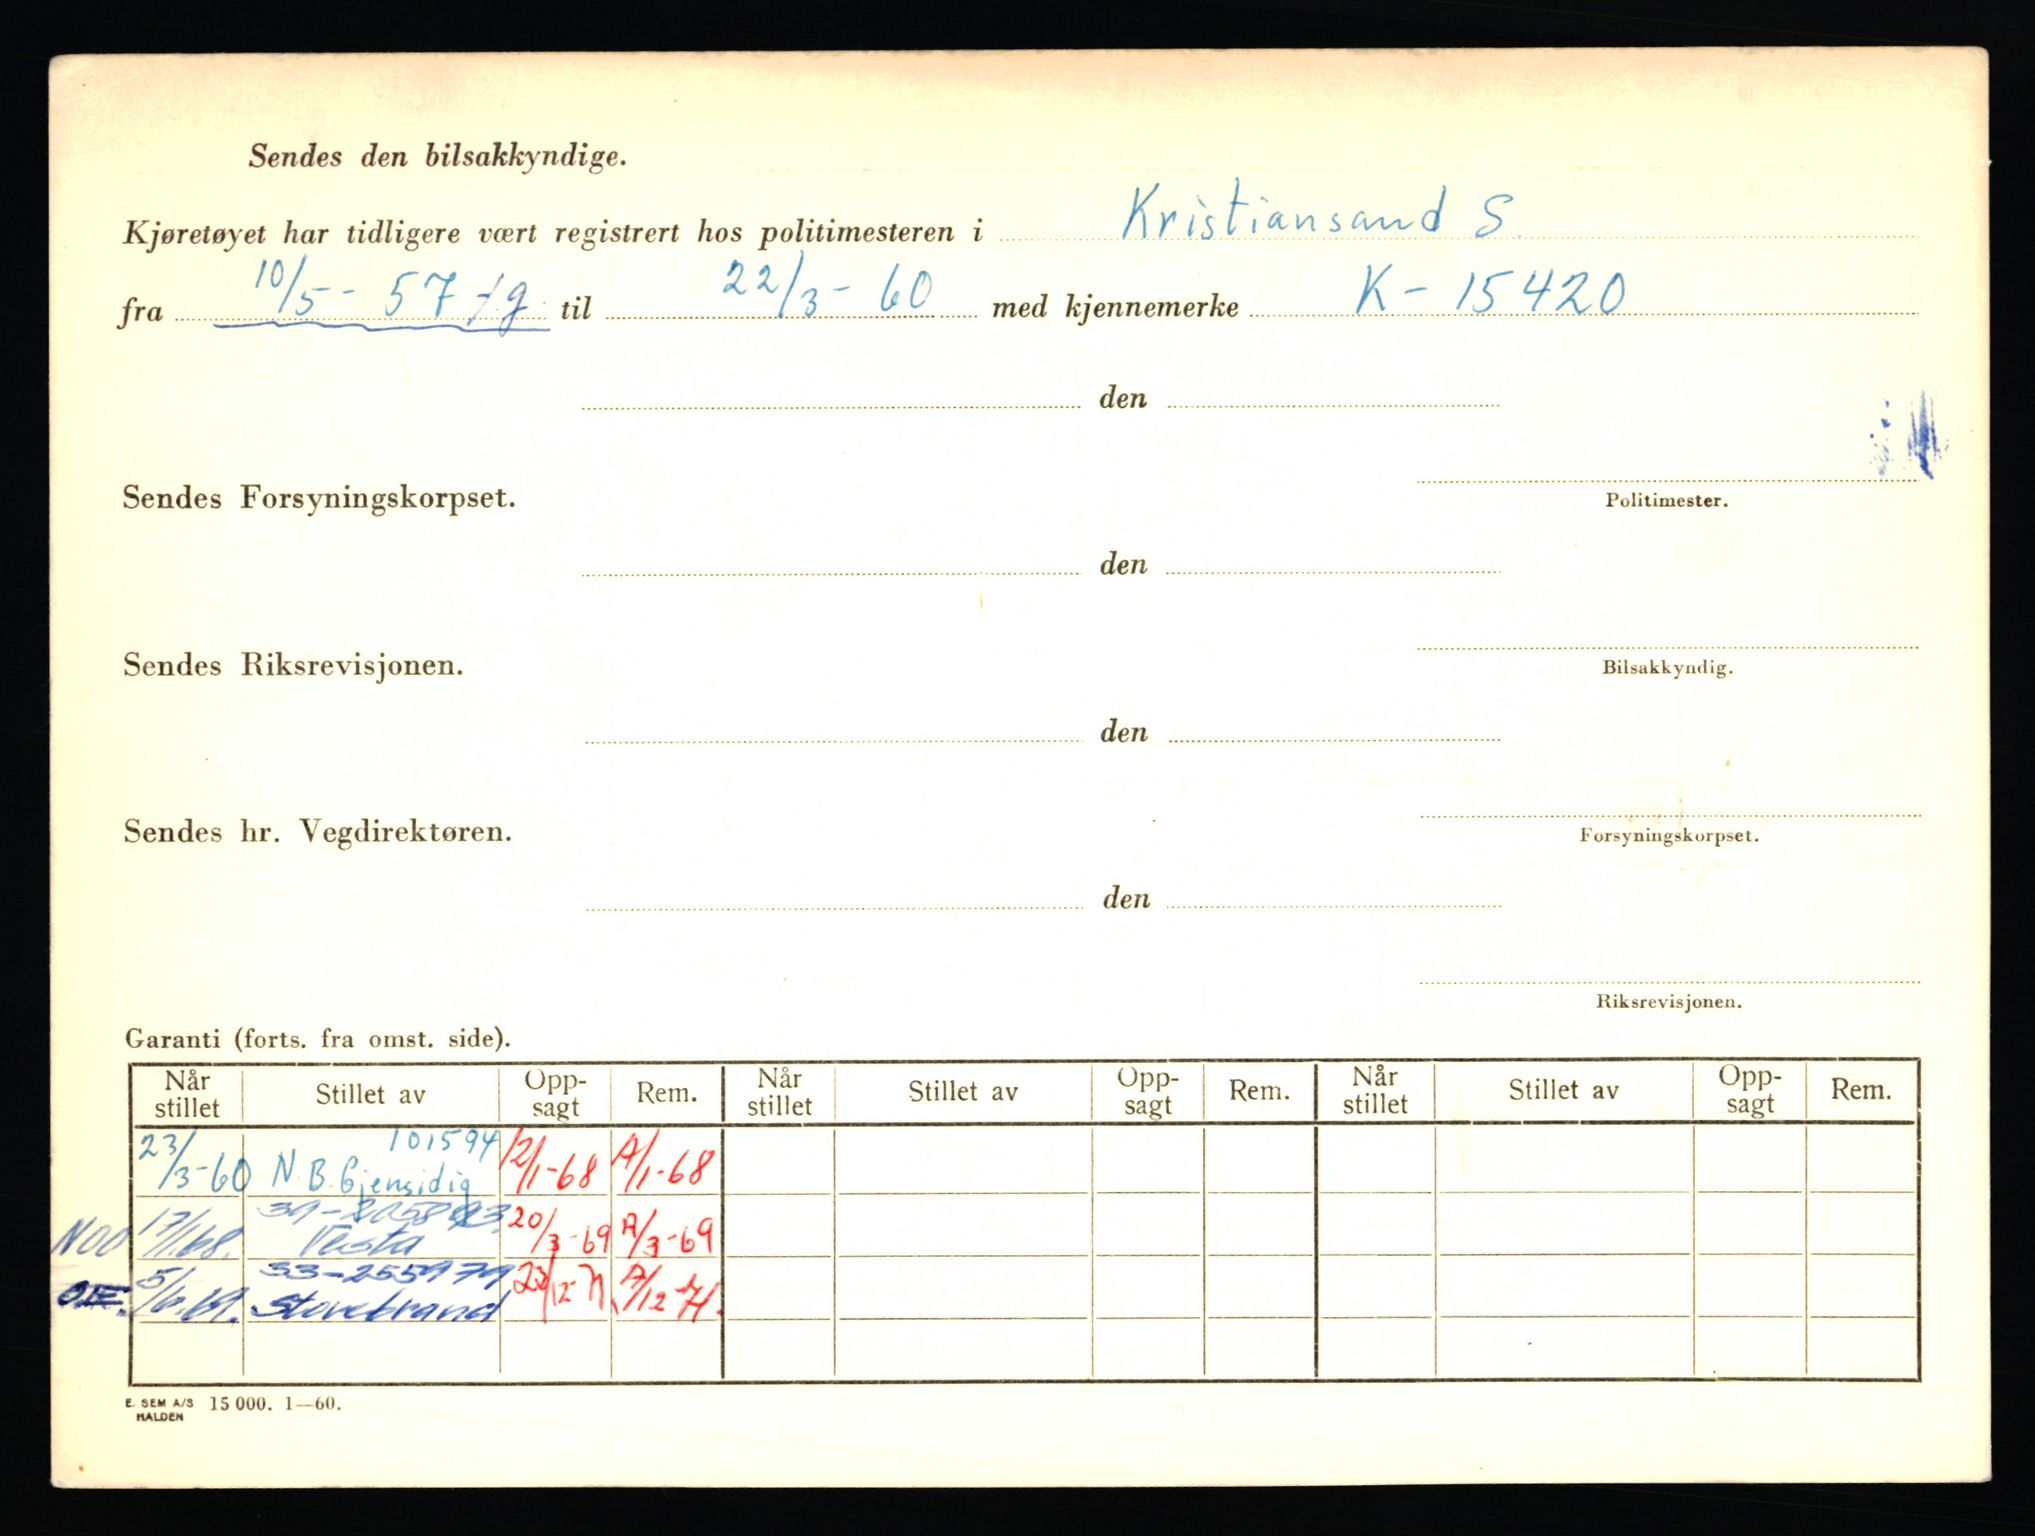 Sendes den bilsakkyndige.
Kjøretøyet har tidligere vært registrert hos politimesteren i Kristiansand S.
fra 10/5- 57 fg til 22/3- 60 med kjennemerke K- 15420
den
Politimester.
Sendes Forsyningskorpset.
den
Bilsakkyndig.
Sendes Riksrevisjonen.
den
Forsyningskorpset.
Sendes hr. Vegdirektøren.
den
Riksrevisjonen.
Garanti (forts. fra omst. side).
Når stillet Stillet av Opp-sagt Rem. Når stillet Stillet av Opp-sagt Rem. Når stillet Stillet av Opp-sagt Rem.
101594
23/3-60 N.B. Gjensidig 12/1-68 A/1-68
17/1.68. Vesta 20/3-69 A/3-69
33-255979
5/6.69. Storebrand 23/12-71 A/12-71.
E. SEM A/S HALDEN 15 000. 1—60.